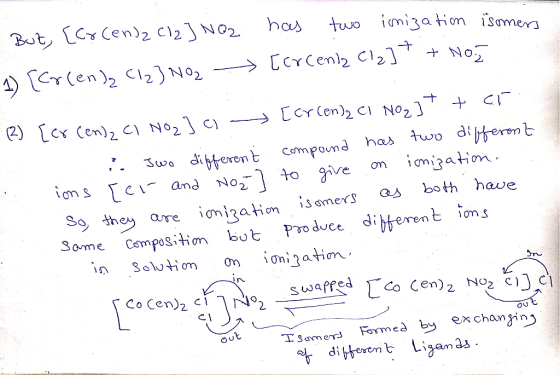 But, [Cr(en)2 Cl2] NO2 has two ionization isomers
1) [Cr(en)2 Cl2] NO2 ⟶ [Cr(en)2 Cl2]+ + NO2-
(2) [Cr (en)2 Cl NO2] Cl ⟶ [Cr(en)2 Cl NO2]+ + Cl-
∴ Two different compound has two different
ions [Cl- and NO2-] to give on ionization.
So, they are ionization isomers as both have
Same composition but produce different ions
in solution on ionization.
in swapped In
[Co(en)2 Cl Cl] NO2 ⇌ [Co (en)2 NO2 Cl] Cl
out out
Isomers Formed by exchanging
of different Ligands.